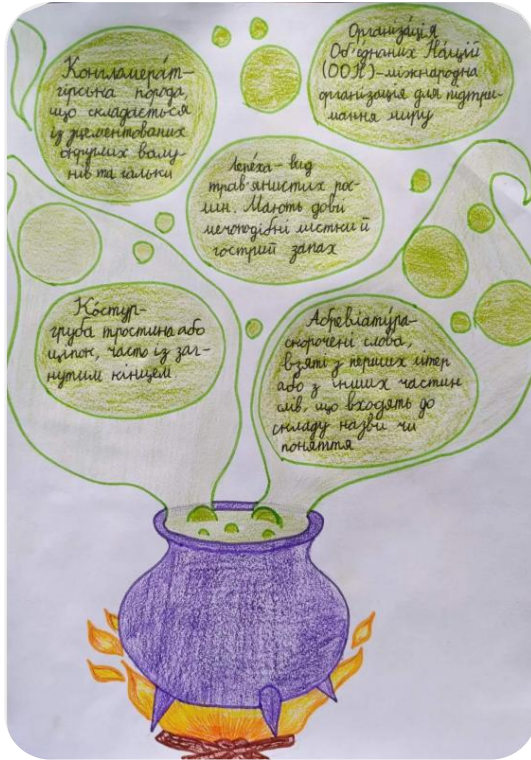 Конгламера́т-
гірська порода,
що складається
із зцементованих
округлих валу-
нів та гальки
Організа́ція
Об'є́днаних На́цій
(ООН)-міжнародна
організація для підтри-
мання миру
Ле́пеха - вид
трав'янистих рос-
лин. Мають довгі
мечоподібні листки й
гострий запах
Ко́стур-
груба тростина або
ціпок, часто із заг-
нутим кінцем
Абревіату́ра-
скорочені слова,
взяті з перших літер
або з інших частин
слів, що входять до
складу назви чи
поняття